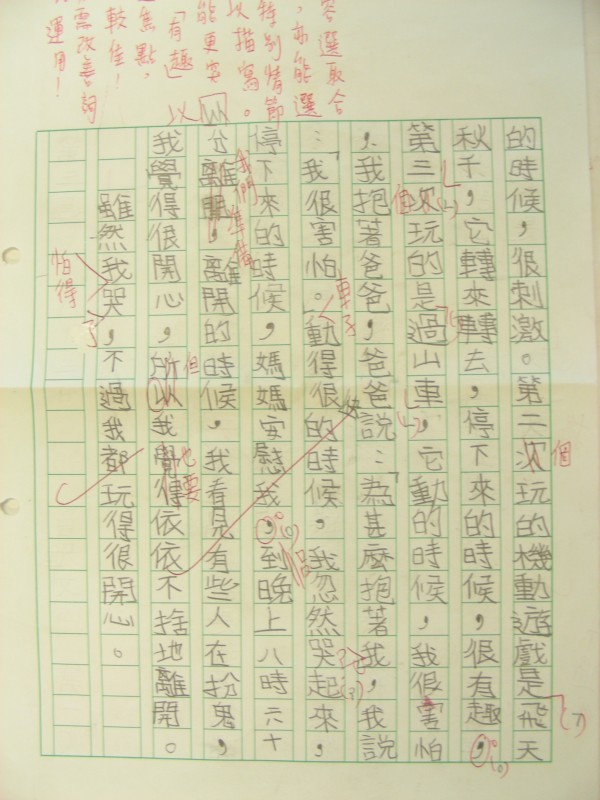 容選取合
，亦能選
特別情節
以描寫。
能更突
「有趣」
焦點，
較佳！
需改善詞
運用！
的時候，很刺激。第二次玩的機動遊戲是飛天
個
秋千，它轉來轉去，停下來的時候，很有趣，
第三次玩的是過山車，它動的時候，我很害怕
個
，我抱著爸爸，爸爸說：「為甚麼抱著我，我說
：「我很害怕。動得很的時候，我忽然哭起來，
車子
停下來的時候，媽媽安慰我，到晚上八時六十
我們準備
分離開，離開的時候，我看見有些人在扮鬼，
但
我覺得很開心，所以我覺得依依不捨地離開。
也要
雖然我哭，不過我都玩得很開心。
怕得